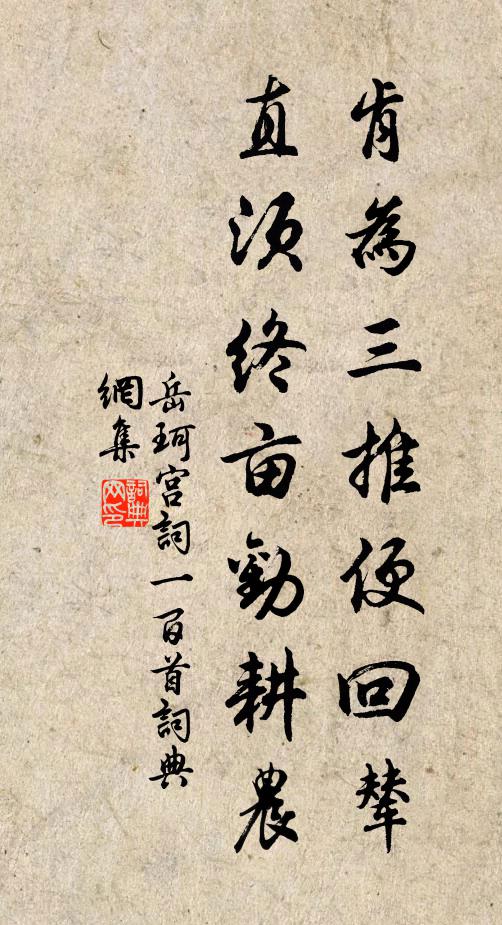 肯為三推便回輦
直須終亩勸耕農
岳珂宮詞一百首詞典
網集
詞典网印